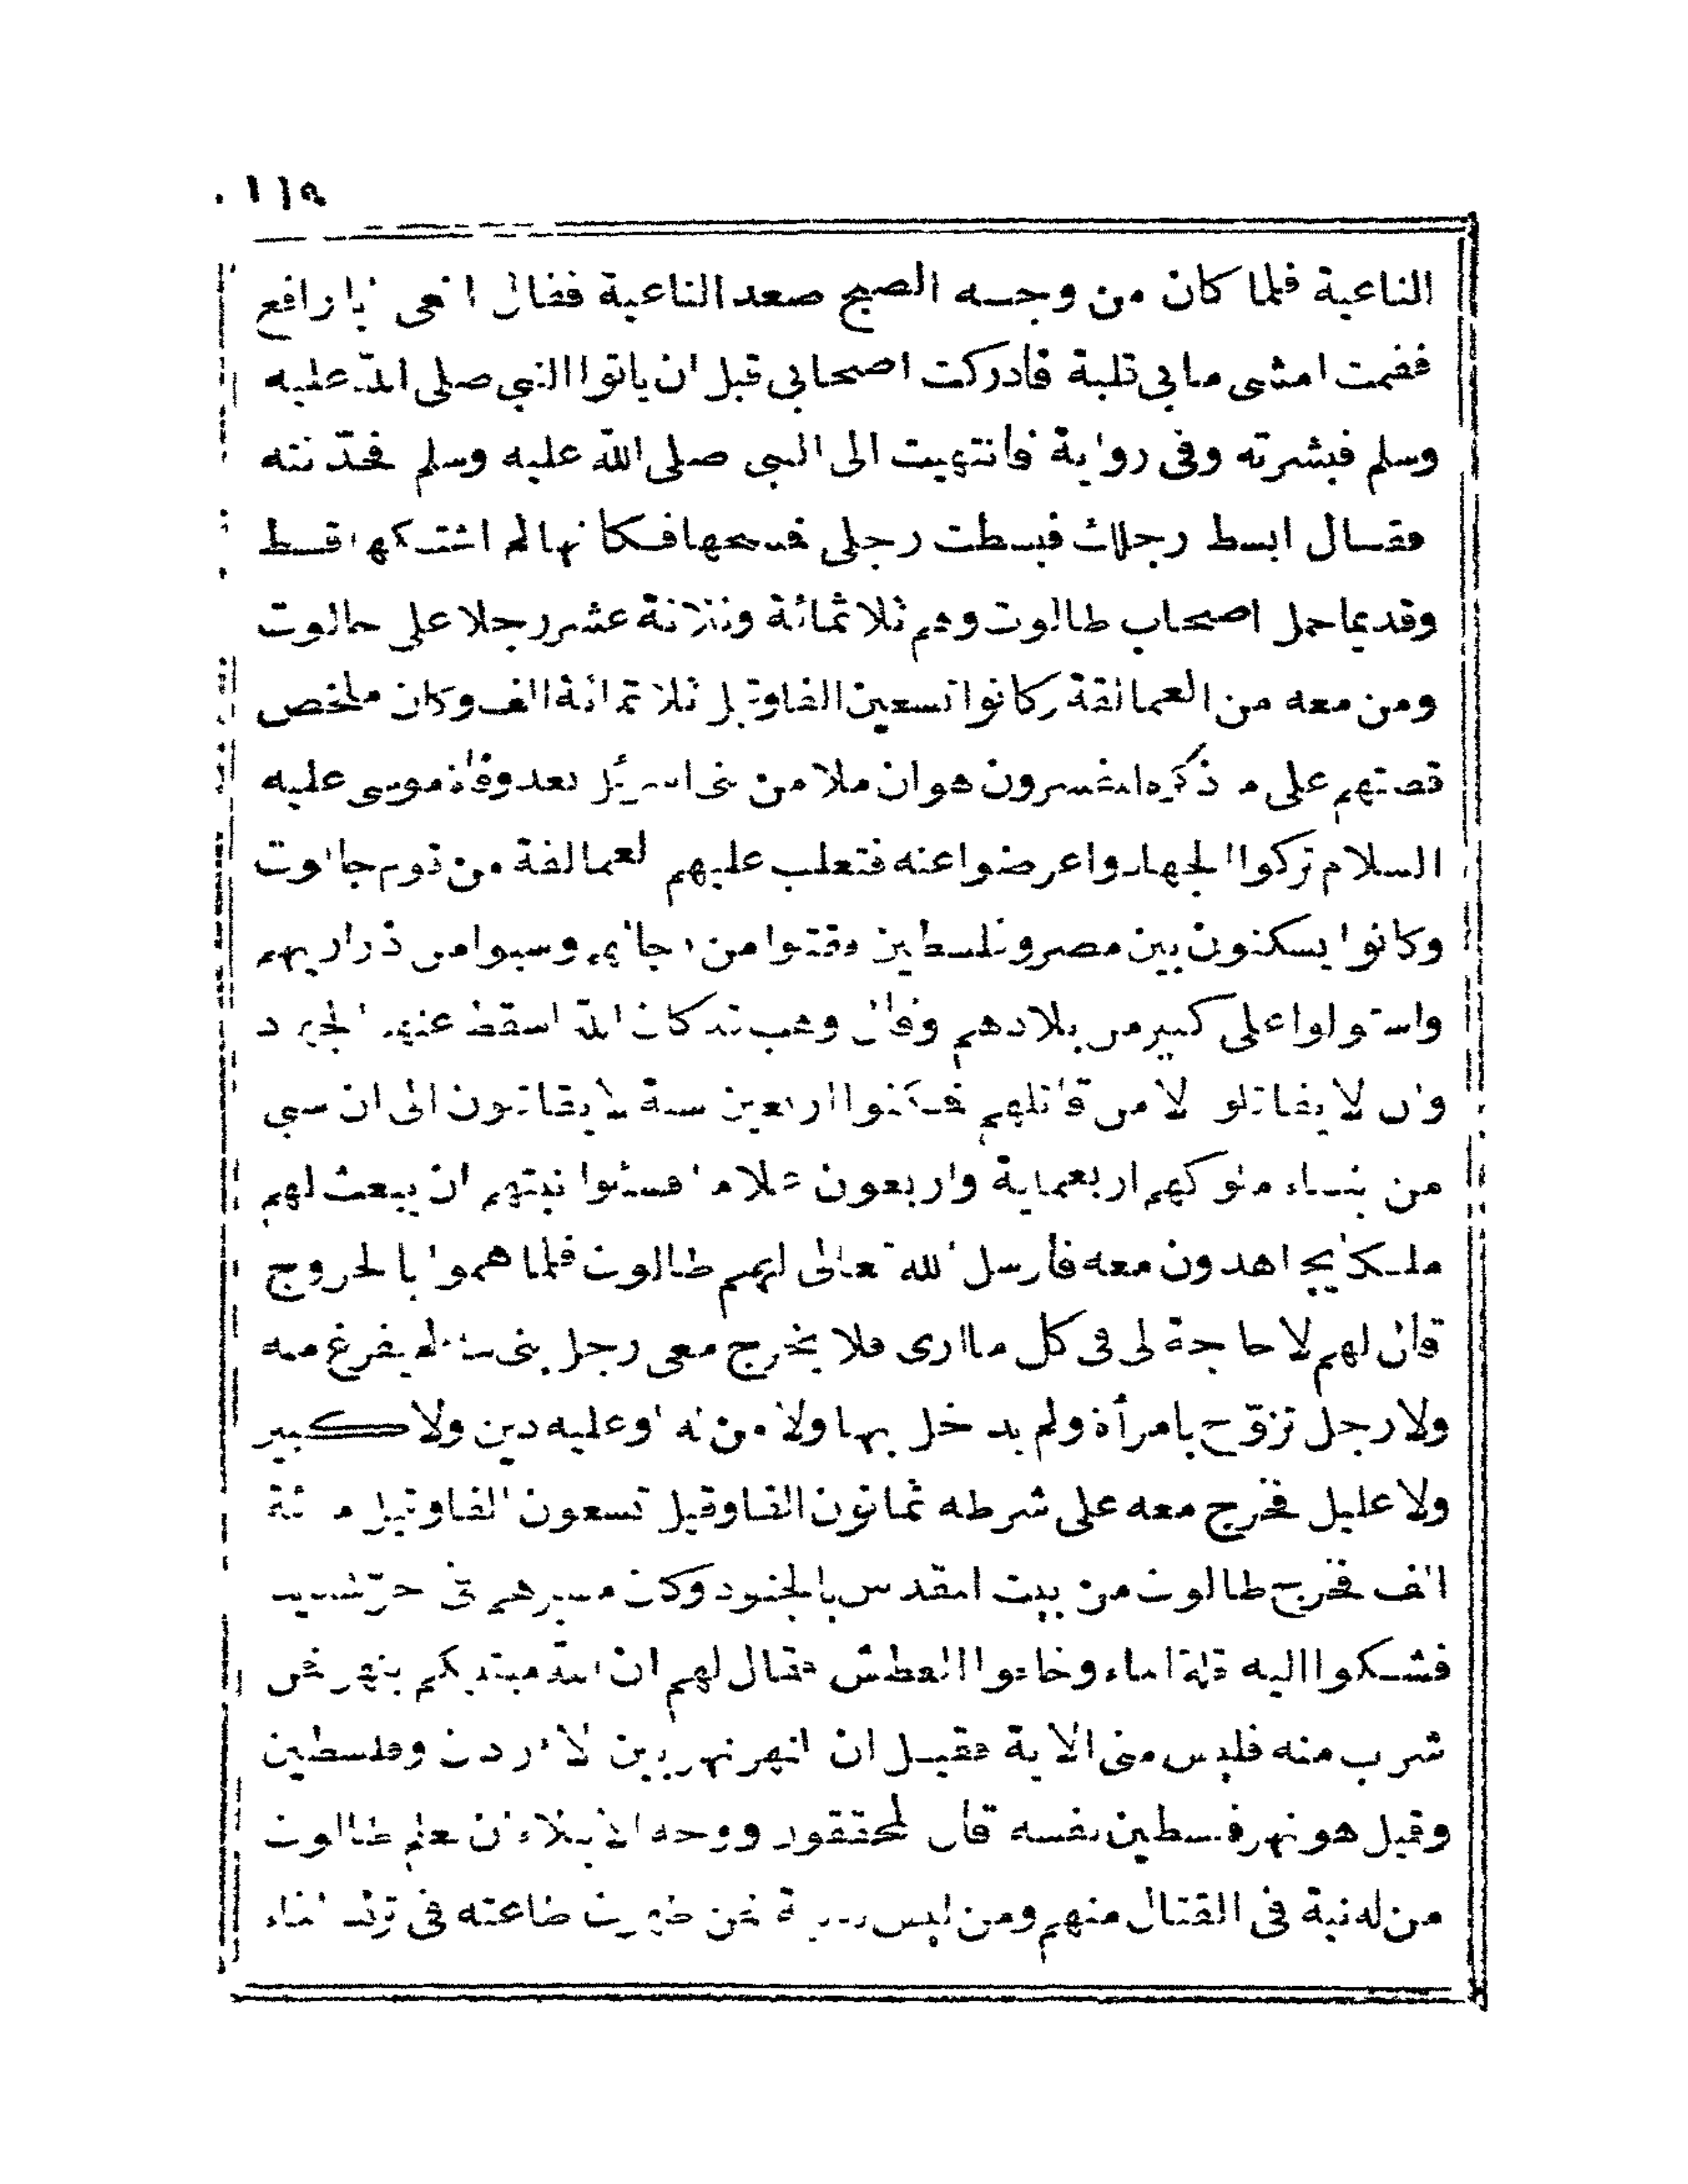 ١١٩
الناعية فلما كان من وجه الصبح صعد الناعية فقال انعى ابا رافع
فقمت امشى ما بي قلبة فأدركت اصحابي قبل ان يأتوا النبي صلى الله عليه
وسلم فبشرته وفى رواية فانتهيت الى النبى صلى الله عليه وسلم فحدّثته
فقال ابسط رجلك فبسطت رجلى فمسحها فكانها لم اشتكها قط
وقديما حمل اصحاب طالوت وهم ثلاثمائة وثلاثة عشر رجلا على جالوت
ومن معه من العمالقة وكانوا تسعين الفا وقيل ثلاثمائة الف وكان ملخص
قصتهم على ما ذكره المفسرون هو ان ملأ من بنى اسرائيل بعد وفاة موسى عليه
السلام تركوا الجهاد واعرضوا عنه فتغلب عليهم العمالقة من قوم جالوت
وكانوا يسكنون بين مصر وفلسطين وقتلوا من وسبوا من ذراريهم
واستولوا على كثير من بلادهم وقال وهب قد كان الله اسقط عنهم الجهاد
وان لا يقاتلوا الا من قاتلهم فمكثوا اربعين سنة لا يقاتلون الى ان سبي
من نساء ملوكهم اربعماية واربعون غلاما فسئلوا نبيهم ان يبعث لهم
ملكا يجاهدون معه فأرسل الله تعالى اليهم طالوت فلما هموا بالخروج
قال لهم لا حاجة لى فى كل ما ارى فلا يخرج معى رجل بنى بناء لم يفرغ منه
ولا رجل تزوّج بامرأة ولم يدخل بها ولا من له او عليه دين ولا كبير
ولا عليل فخرج معه على شرطه ثمانون الفا وقيل تسعون الفا وقيل مائة
الف فخرج طالوت من بيت المقدس بالجنود وكان مسيرهم فى حرّ شديد
فشكوا اليه قلة الماء وخافوا العطش فقال لهم ان الله مبتليكم بنهر فمن
شرب منه فليس منى الاية فقيل ان النهر نهر بين الاردن وفلسطين
وقيل هو نهر فلسطين نفسه قال المحققون ووجه الابتلاء ان يعلم طالوت
من له نية فى القتال منهم ومن ليس له نية فمن ظهرت طاعته فى ترك الماء